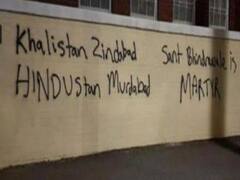 Khalistan Zindabad
HINDUStan Murdabad
Sant Bhindrawale is
MARTYR